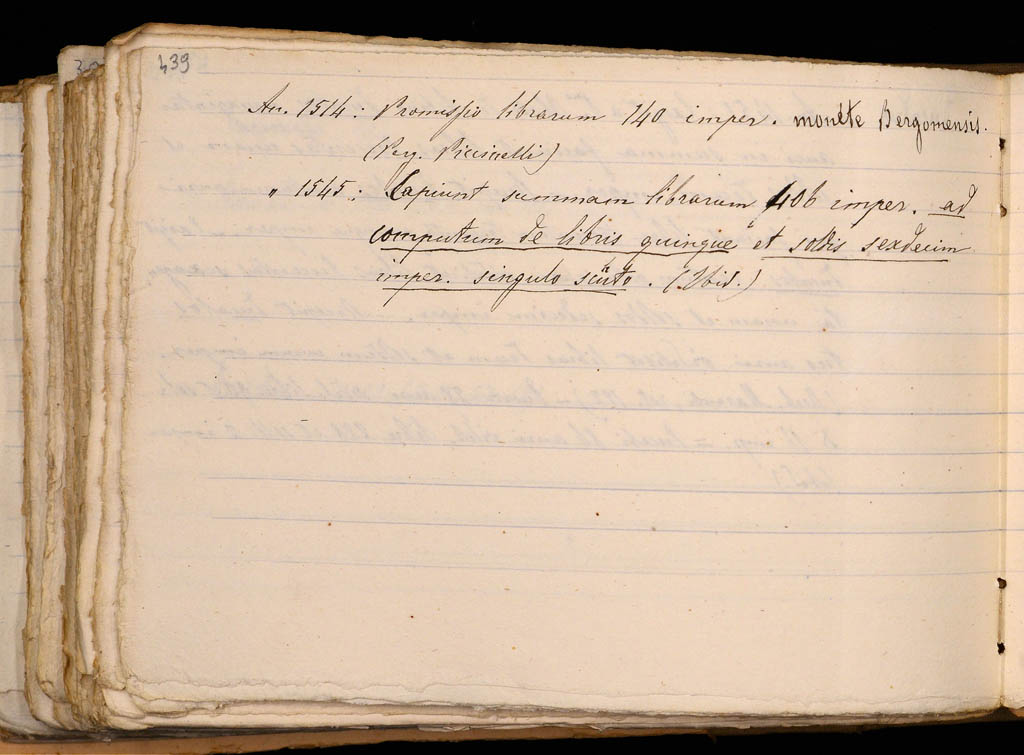 439
An. 1514: Promissio librarum 140 imper. monete Bergomensis.
(Perg. Piccinelli)
" 1545: Capiunt summam librarum 406 imper. ad
computum de libris quinque et soldis sexdecim
imper. singulo scuto. (Ibid.)